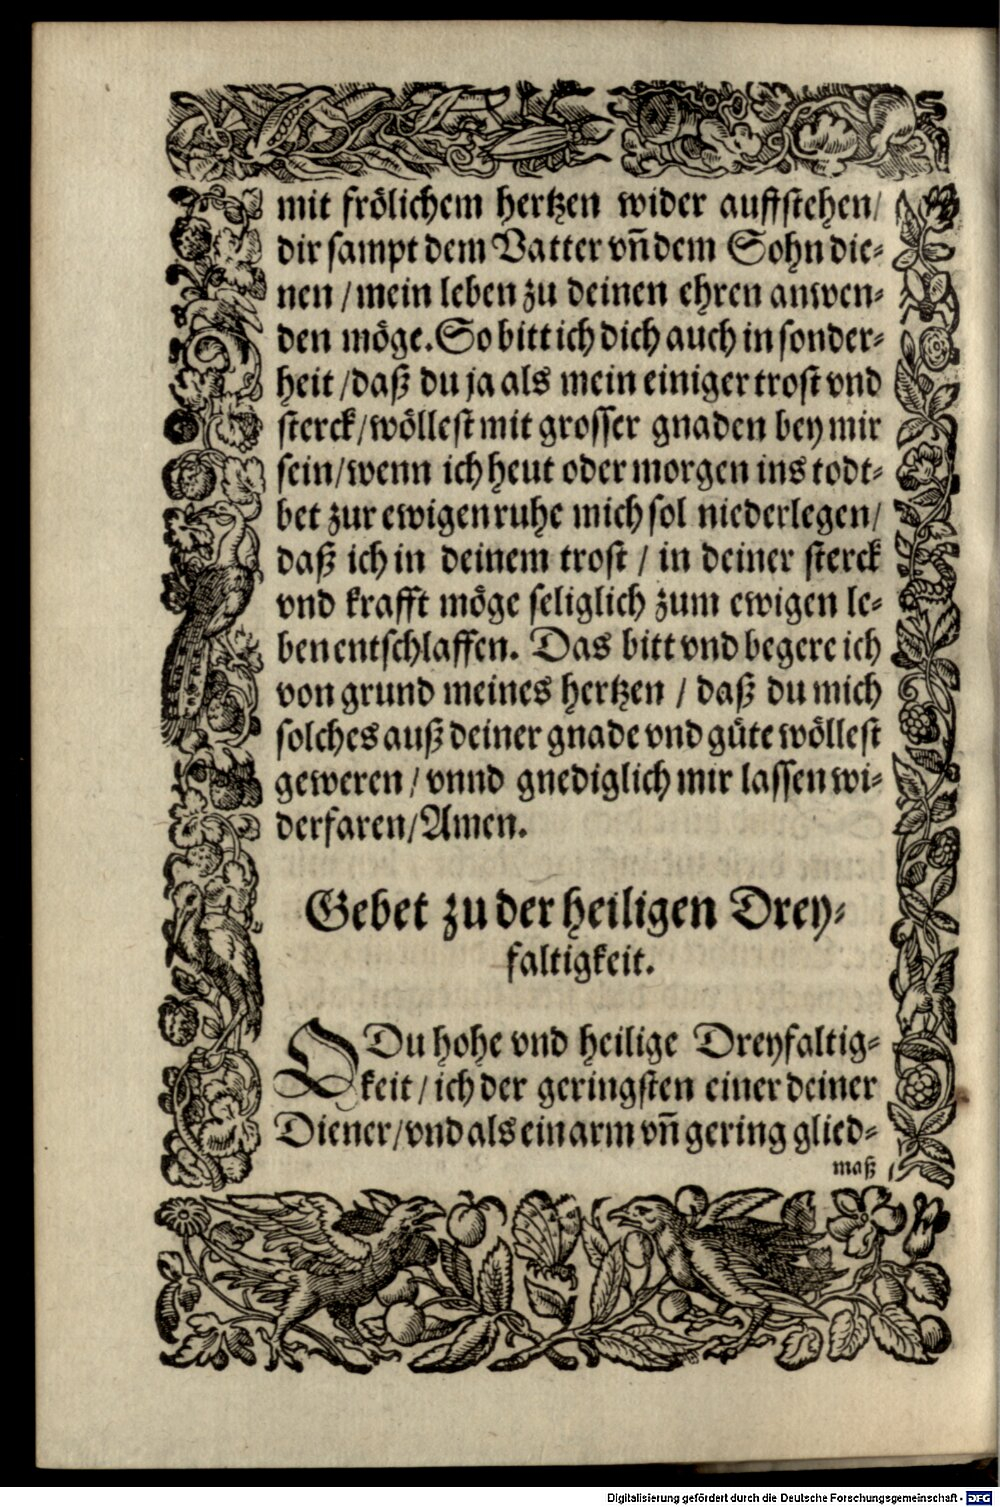 mit frölichem hertzen wider auffstehen/
dir sampt dem Vatter vn̄ dem Sohn die-
nen / mein leben zu deinen ehren anwen-
den möge. So bitt ich dich auch in sonder-
heit / daß du ja als mein einiger trost vnd
sterck / wöllest mit grosser gnaden bey mir
sein / wenn ich heut oder morgen ins todt-
bet zur ewigen ruhe mich sol niederlegen/
daß ich in deinem trost / in deiner sterck
vnd krafft möge seliglich zum ewigen le-
ben entschlaffen. Das bitt vnd begere ich
von grund meines hertzen / daß du mich
solches auß deiner gnade vnd güte wöllest
geweren / vnnd gnediglich mir lassen wi-
derfaren / Amen.
Gebet zu der heiligen Drey-
faltigkeit.
O Du hohe vnd heilige Dreyfaltig-
keit / ich der geringsten einer deiner
Diener / vnd als ein arm vn̄ gering glied-
maß
Digitalisierung gefördert durch die Deutsche Forschungsgemeinschaft - DFG